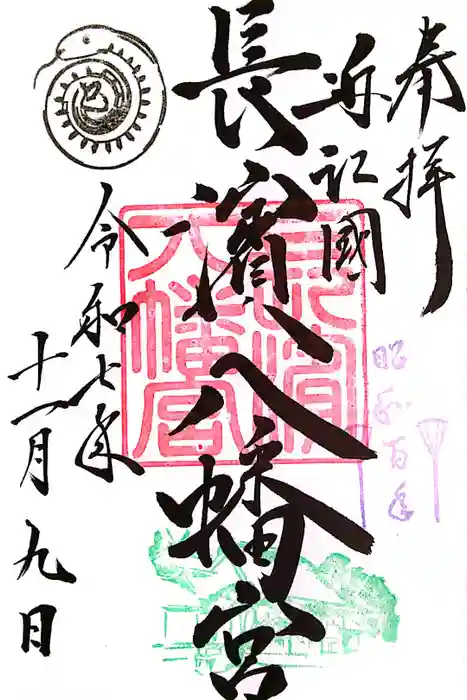 奉拝
近江國
長濱八幡宮
昭和百年
令和七年
十一月九日
巳
長濱
八幡宮